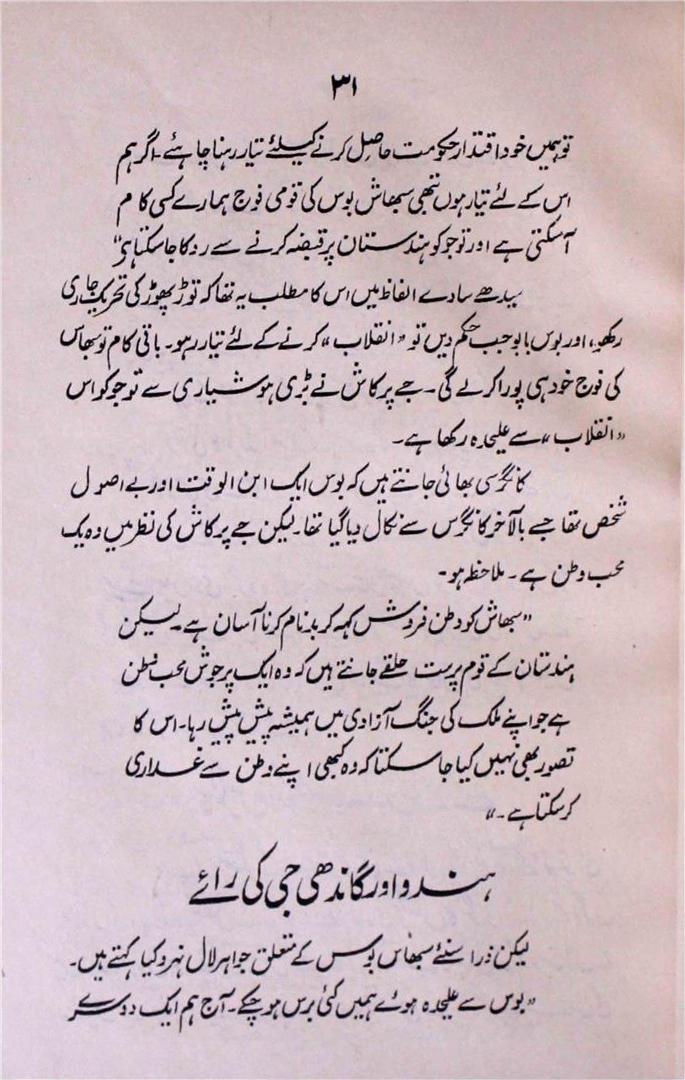 ۳۱
تو ہمیں خود اقتدار حکومت حاصل کرنے کیلئے تیار رہنا چاہئے۔ اگر ہم
اس کے لئے تیار ہوں تبھی سبھاش بوس کی قومی فوج ہمارے کسی کام
آ سکتی ہے اور توجو کو ہندستان پر قبضہ کرنے سے روکا جا سکتا ہے"
سیدھے سادے الفاظ میں اس کا مطلب یہ تھا کہ توڑ پھوڑ کی تحریک جاری
رکھو، اور بوس بابو جب حکم دیں تو "انقلاب" کرنے کے لئے تیار رہو۔ باقی کام تو سبھاس
کی فوج خود ہی پورا کر لے گی۔ جے پرکاش نے بڑی ہوشیاری سے توجو کو اس
"انقلاب" سے علیحدہ رکھا ہے۔
کانگرسی بھائی جانتے ہیں کہ بوس ایک ابن الوقت اور بے اصول
شخص تھا جسے بالآخر کانگرس سے نکال دیا گیا تھا۔ لیکن جے پرکاش کی نظر میں وہ یک
محب وطن ہے۔ ملاحظہ ہو۔
"سبھاش کو وطن فروش کہہ کر بدنام کرنا آسان ہے۔ لیکن
ہندستان کے قوم پرست حلقے جانتے ہیں کہ وہ ایک پرجوش محب وطن
ہے جو اپنے ملک کی جنگ آزادی میں ہمیشہ پیش پیش رہا۔ اس کا
تصور بھی نہیں کیا جا سکتا کہ وہ کبھی اپنے وطن سے غداری
کر سکتا ہے۔"
ہندو اور گاندھی جی کی رائے
لیکن ذرا سنئے سبھاس بوس کے متعلق جواہر لال نہرو کیا کہتے ہیں۔
"بوس سے علیحدہ ہوئے ہمیں کئی برس ہو چکے۔ آج ہم ایک دوسرے